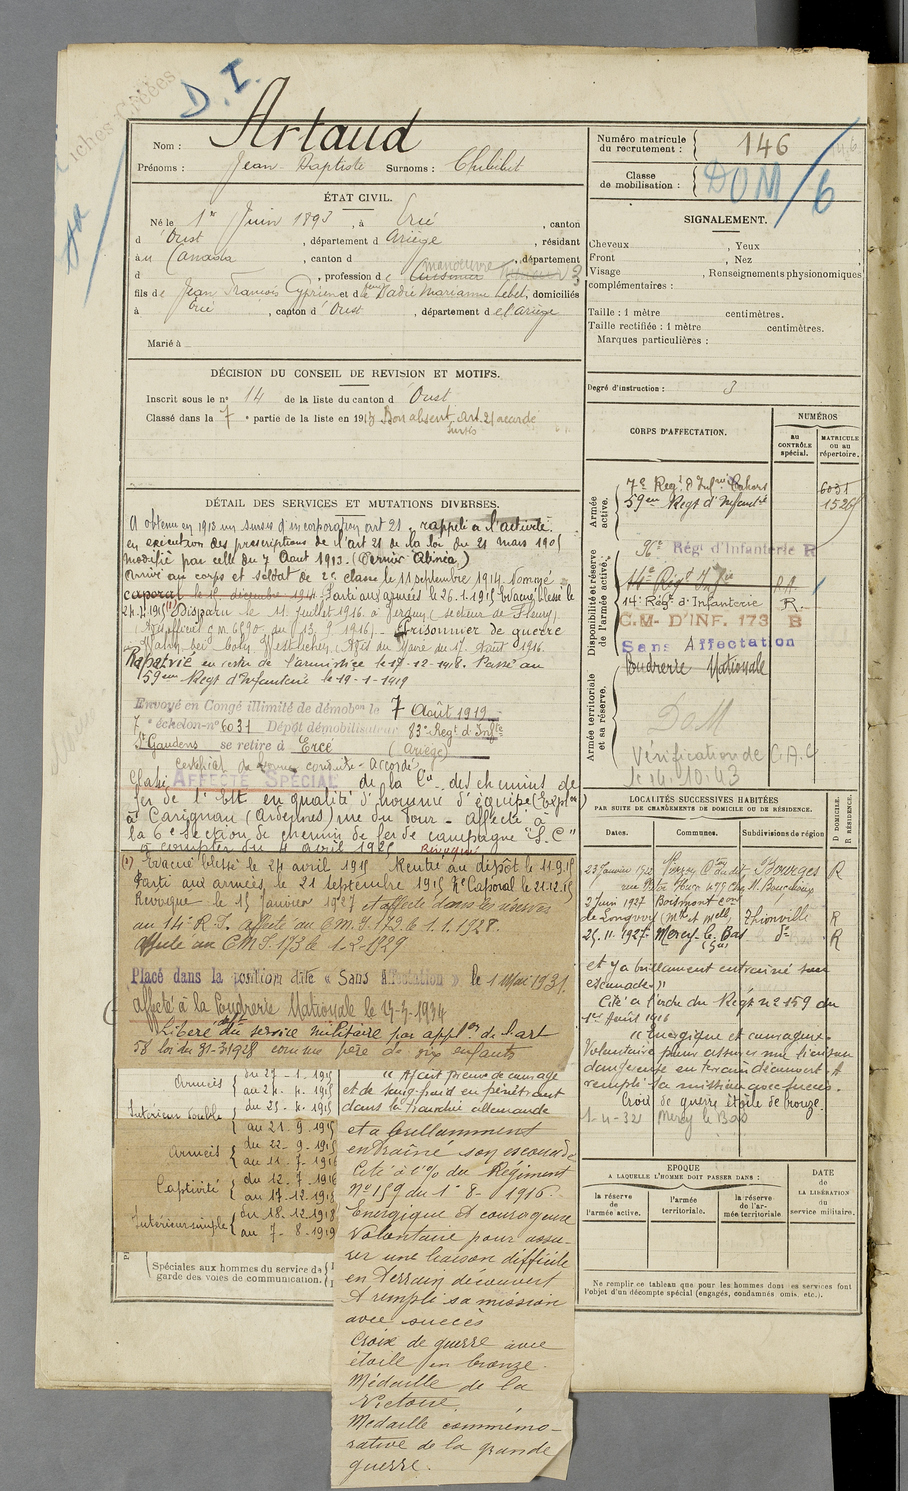 iches Créées
D. I.
Nom : Artaud
Prénoms : Jean-Baptiste Surnoms : Chibichet
ÉTAT CIVIL.
Né le 1er Juin 1893, à Ercé, canton
d'Oust, département d Ariège, résidant
au Canada, canton d , département
d , profession de manoeuvre
fils de Jean François Cyprien et de Marianne , domiciliés
à Ercé, canton d'Oust, département de l'ariège
Marié à
DÉCISION DU CONSEIL DE REVISION ET MOTIFS.
Inscrit sous le n° 14 de la liste du canton d Oust
Classé dans la 7e partie de la liste en 1913 Bon absent art. 21 accordé
sursis
DÉTAIL DES SERVICES ET MUTATIONS DIVERSES.
A obtenu en 1913 un sursis d'incorporation art 21. rappelé à l'activité
en exécution des prescriptions de l'art 21 de la loi du 21 mars 1905
modifié par celle du 7 Aout 1913. (Dernier Alinéa)
Arrivé au corps et soldat de 2e classe le 11 septembre 1914. Nommé
caporal le 15 décembre 1914. Parti aux armées le 26.1.1915 Evacué blessé le
24.4.1915 (1) Disparu le 11 Juillet 1916 à (secteur de Fleury)
(Avis officiel du 13.9.1916). Prisonnier de guerre
Avis du Maire du 17 Août 1916.
Rapatrié en vertu de l'armistice le 17-12-1918. Passé au
59eme Régt d'Infanterie le 19-1-1919
Envoyé en Congé illimité de démobon le 7 Août 1919
7e échelon n° 6031 Dépôt démobilisateur 83e Regt d'Infie
St Gaudens se retire à Ercé (Ariège)
Certificat de bonne conduite - Accordé
Classé AFFECTÉ SPÉCIAL de la Cie des chemins de
fer de l'Est en qualité d'homme d'équipe (Expon)
à Carignan (Ardennes) rue du Four - Affecté à
la 6e Section de chemin de fer de campagne "S.C"
à compter du 4 avril 1925 Révoqué
(1) Evacué blessé le 24 avril 1915 Rentré au dépôt le 11.9.15
Parti aux armées le 21 septembre 1915 Caporal le 21.12.15
Révoqué le 15 Janvier 1927 et affecté dans les réserves
au 14e R.I. affecté au C M. I. 173 le 1.1.1928.
Affecté au C M I 173 le 1-2-1929
Placé dans la position dite « Sans Affectation » le 1 Mai 1931.
Affecté à la Poudrerie Nationale le 23-3-1934
Libéré du service militaire par applon de l'art
58 loi du 31-3-1928 comme père de six enfants
Armées { du 27 - 1 - 1915
au 24 - 4 - 1915
Intérieur double { du 25 - 4 - 1915
au 21 - 9 - 1915
Armées { du 22 - 9 - 1915
au 11 - 7 - 1916
Captivité { du 12 - 7 - 1916
au 17-12-1918
Intérieur simple { du 18-12-1918
au 7 - 8 - 1919
Spéciales aux hommes du service de
garde des voies de communication.
"A fait preuve de courage
et de sang-froid en pénétrant
dans la tranchée allemande
et a brillamment
entraîné son escouade
Cité à l'o/ du Régiment
N° 159 du 1er 8 - 1916
Energique et courageux
Volontaire pour assu-
rer une liaison difficile
en terrain découvert
A rempli sa mission
avec succès
Croix de guerre avec
étoile en bronze.
Médaille de la
Victoire.
Médaille commémo-
rative de la grande
guerre.
Numéro matricule
du recrutement : 146
Classe
de mobilisation : DOM/6
SIGNALEMENT.
Cheveux , Yeux ,
Front , Nez ,
Visage , Renseignements physionomiques
complémentaires :
Taille : 1 mètre centimètres.
Taille rectifiée : 1 mètre centimètres.
Marques particulières :
Degré d'instruction : 3
CORPS D'AFFECTATION.
NUMÉROS
au
CONTRÔLE
spécial.
MATRICULE
ou au
répertoire.
Armée
active.
7e Regt d'Infrie Cahors 6031
59eme Regt d'Infanterie 15265
Disponibilité et réserve
de l'armée active.
96e Régt d'Infanterie R
14e Régt Infie R.A.
14e Régt d'Infanterie R.
C.M- D'INF. 173 B
Sans Affectation
Poudrerie Nationale
Armée territoriale
et sa réserve.
DoM
Vérification de C.A.C
le 14.10.43
LOCALITÉS SUCCESSIVES HABITÉES
PAR SUITE DE CHANGEMENTS DE DOMICILE OU DE RÉSIDENCE.
Dates. Communes. Subdivisions de région
D DOMICILE.
R RÉSIDENCE.
23 Janvier Bourges R
2 Juin 1927 Boismont con
de Longwy (Mthe et Mlle) Thionville R
25.11.1927 Mercy-le-Bas do R
et y a brillament entraîné son
escouade"
Cité à l'ordre du Régt n° 159 du
1er Août 1916
"Energique et courageux.
Volontaire pour assurer une liaison
dangereuse en terrain découvert. A
rempli sa mission avec succès.
Croix de guerre étoile de bronze.
1-4-32 Mercy le Bas
EPOQUE
A LAQUELLE L'HOMME DOIT PASSER DANS :
la réserve
de l'armée active.
l'armée
territoriale.
la réserve
de l'ar-
mée territoriale
DATE
de
LA LIBÉRATION
du
service militaire.
Ne remplir ce tableau que pour les hommes dont les services font
l'objet d'un décompte spécial (engagés, condamnés omis, etc.).